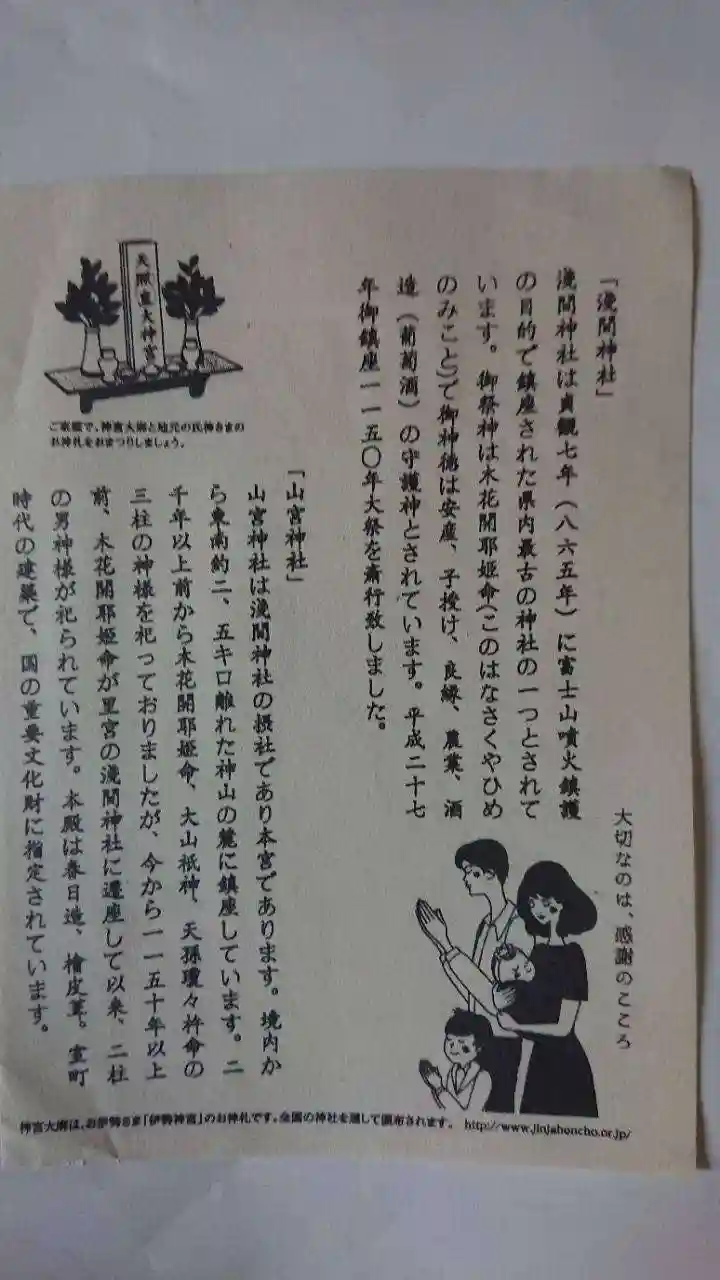 大切なのは、感謝のこころ
「浅間神社」
浅間神社は貞観七年（八六五年）に富士山噴火鎮護
の目的で鎮座された県内最古の神社の一つとされて
います。御祭神は木花開耶姫命(このはなさくやひめ
のみこと)で御神徳は安産、子授け、良縁、農業、酒
造（葡萄酒）の守護神とされています。平成二十七
年御鎮座一一五〇年大祭を斎行致しました。
「山宮神社」
山宮神社は浅間神社の摂社であり本宮であります。境内か
ら東南約二、五キロ離れた神山の麓に鎮座しています。二
千年以上前から木花開耶姫命、大山祇神、天孫瓊々杵命の
三柱の神様を祀っておりましたが、今から一一五十年以上
前、木花開耶姫命が里宮の浅間神社に遷座して以来、二柱
の男神様が祀られています。本殿は春日造、檜皮葺。室町
時代の建築で、国の重要文化財に指定されています。
天照皇大神宮
ご家庭で、神宮大麻と地元の氏神さまの
お神札をおまつりしましょう。
神宮大麻は、お伊勢さま「伊勢神宮」のお神札です。全国の神社を通して頒布されます。 http://www.jinjahoncho.or.jp/